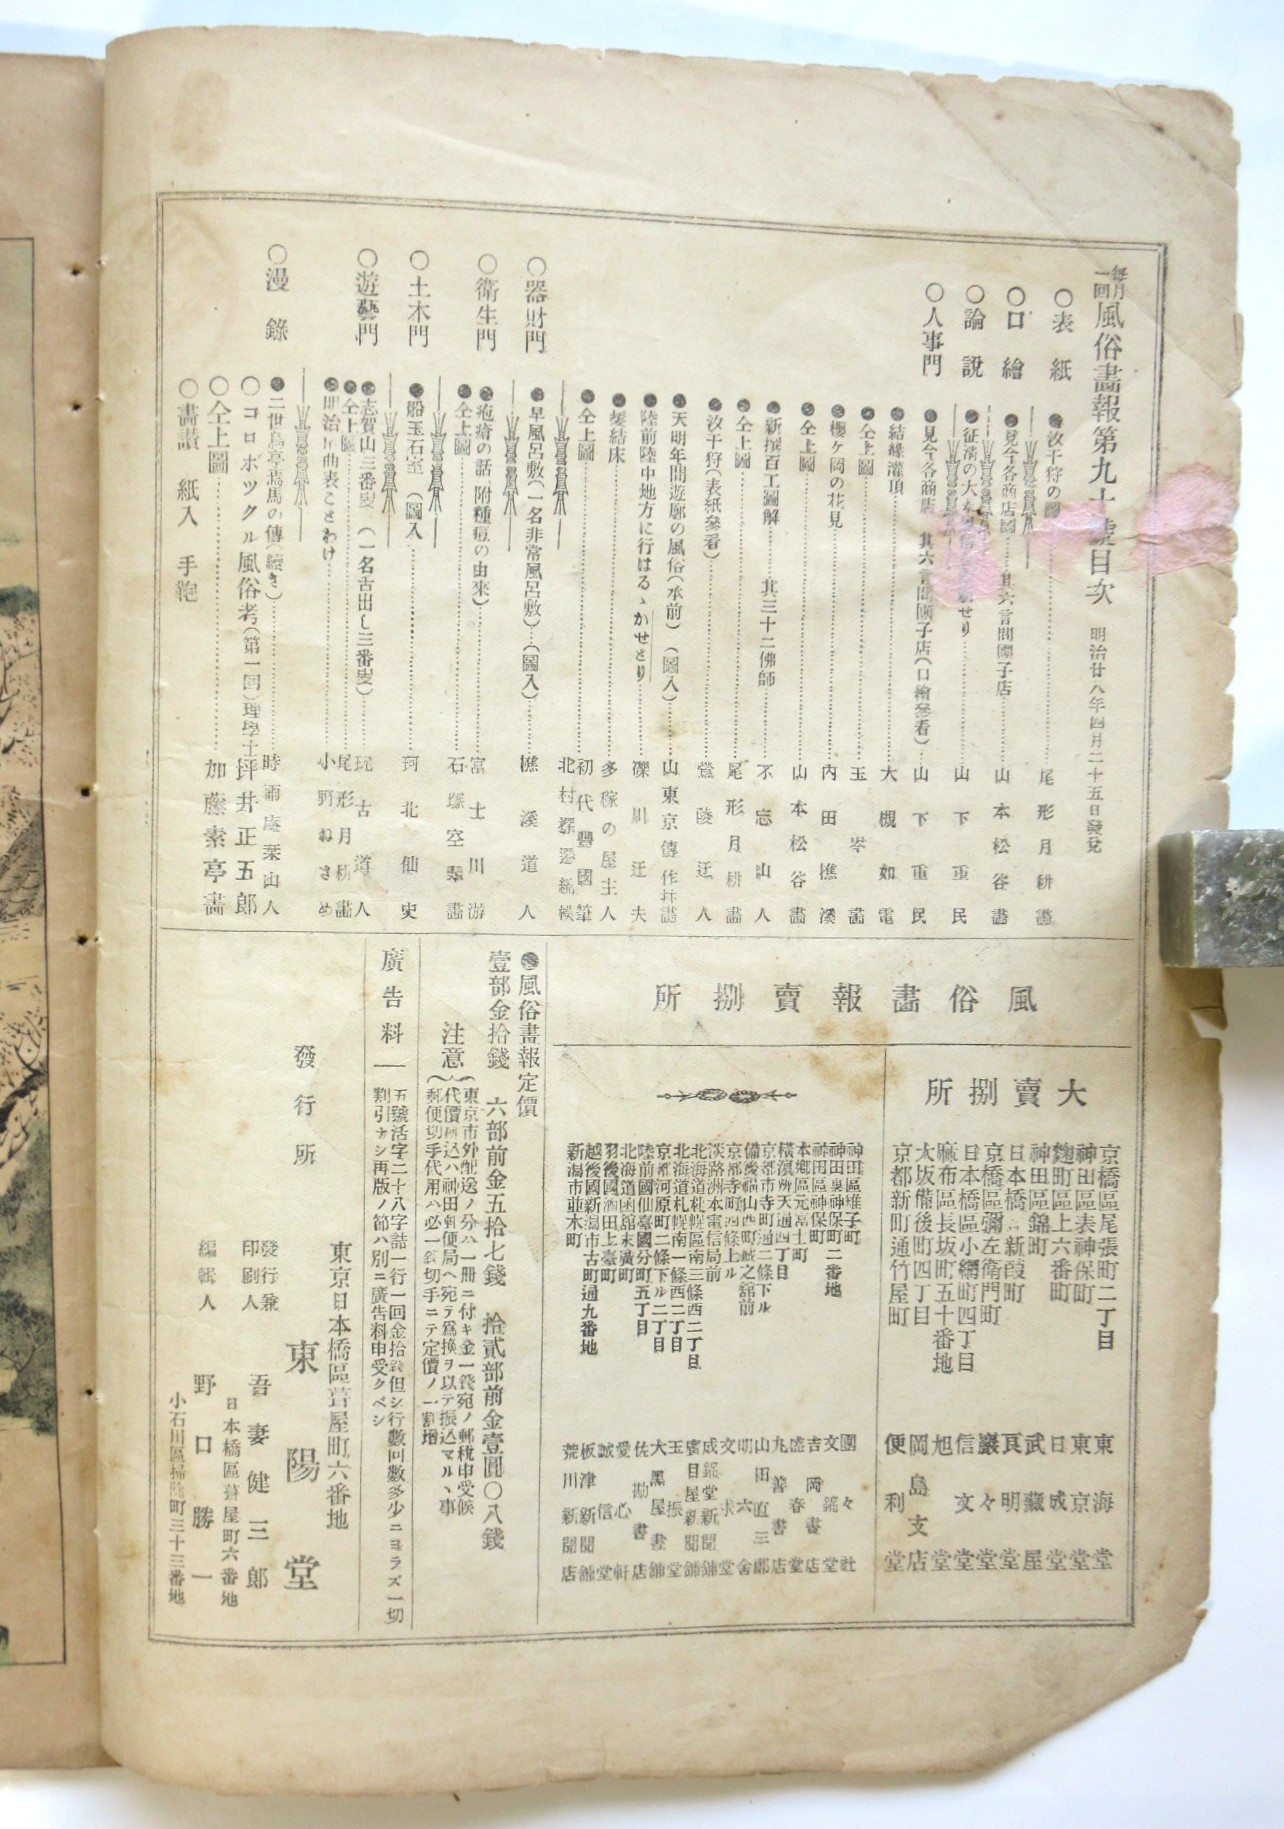 毎月一回 風俗畫報第九十號目次 明治廿八年四月二十五日發兌
○表紙
●汐干狩の圖 尾形月耕畫
○口繪
●見今各商店圖 其六言問團子店 山本松谷畫
○論說
●征淸の大 せり 山下重民
○人事門
●見今各商店 其六言問團子店(口繪參看) 山下重民
●結緣灌頂 大槻如電
●仝上圖 玉岑畫
●櫻ケ岡の花見 內田樵溪
●仝上圖 山本松谷畫
●新撰百工圖解 其三十二佛師 不忘山人
●仝上圖 尾形月耕畫
●汐干狩(表紙參看) 鶯陵迂人
●天明年間遊廓の風俗(承前)(圖入) 山東京傳作幷畫
●陸前陸中地方に行はるゝかせとり 礫川迂夫
●髮結床 多稼の屋主人
●仝上圖 初代豐國筆 北村探瀅縮模
○器財門
●早風呂敷(一名非常風呂敷)(圖入) 樵溪道人
○衛生門
●疱瘡の話 附種痘の由來) 富士川游
●仝上圖 石塚空翠畫
○土木門
●船玉石室 (圖入) 珂北仙史
○遊藝門
●志賀山三番叟 (一名舌出し三番叟) 琵古道人
●仝上圖 尾形月耕畫
●明治 曲表ことわけ 小野ねざめ
○漫錄
●二世烏亭焉馬の傳(續き) 時雨庵栞山人
○コロボツクル風俗考(第一回) 理學士坪井正五郎
○仝上圖 加藤素亭畫
○畫讃 紙入 手鞄
風俗畫報賣捌所
大賣捌所
京橋區尾張町二丁目 東海堂
神田區表神保町 東京堂
麴町區上六番町 日成堂
神田區錦町 武藏屋
日本橋區新葭町 良明堂
京橋區彌左衛門町 巖々堂
日本橋區小網町四丁目 信文堂
麻布區長坂町五十番地 旭堂
大坂備後町四丁目 岡島支店
京都新町通竹屋町 便利堂
神田區雉子町 團々社
神田裏神保町二番地 文錦堂
神田區神保町 吉岡書店
本鄕區元富士町 盛春堂
橫濱所天通四丁目 丸善書店
京都市寺町通二條下ル 山田直三郎
備後福山西町城之舘前 明六舍
京都寺町四條上ル 文求堂
淡路洲本電信局前 成錦堂新聞舖
北海道札幌區南三條西二丁目 賓日屋新聞舖
北海道札幌南一條西二丁目 玉振堂
京都河原町二條下ル二丁目 大黑屋書舖
陸前國仙臺國分町五丁目 佐勘書店
北海道函舘末廣町 愛心軒
羽後國酒田上臺町 誠信堂
越後國新潟市古町通九番地 板津新聞舖
新潟市並木町 荒川新聞店
●風俗畫報定價
壹部金拾錢 六部前金五拾七錢 拾貳部前金壹圓〇八錢
注意
東京市外配送ノ分ハ一册ニ付キ金一錢宛ノ郵稅申受候
代價振込ハ神田郵便局ヘ宛テ爲換ヲ以テ振込マルヽ事
郵便切手代用ハ必一錢切手ニテ定價ノ一割增
廣告料
五號活字二十八字詰一行一回金拾錢但シ行數回數多少ニヨラズ一切
割引ナシ再版ノ節ハ別ニ廣告料申受クベシ
發行所
東京日本橋區葺屋町六番地
東陽堂
發行兼印刷人
日本橋區葺屋町六番地
吾妻健三郎
編輯人
小石川區掃除町三十三番地
野口勝一